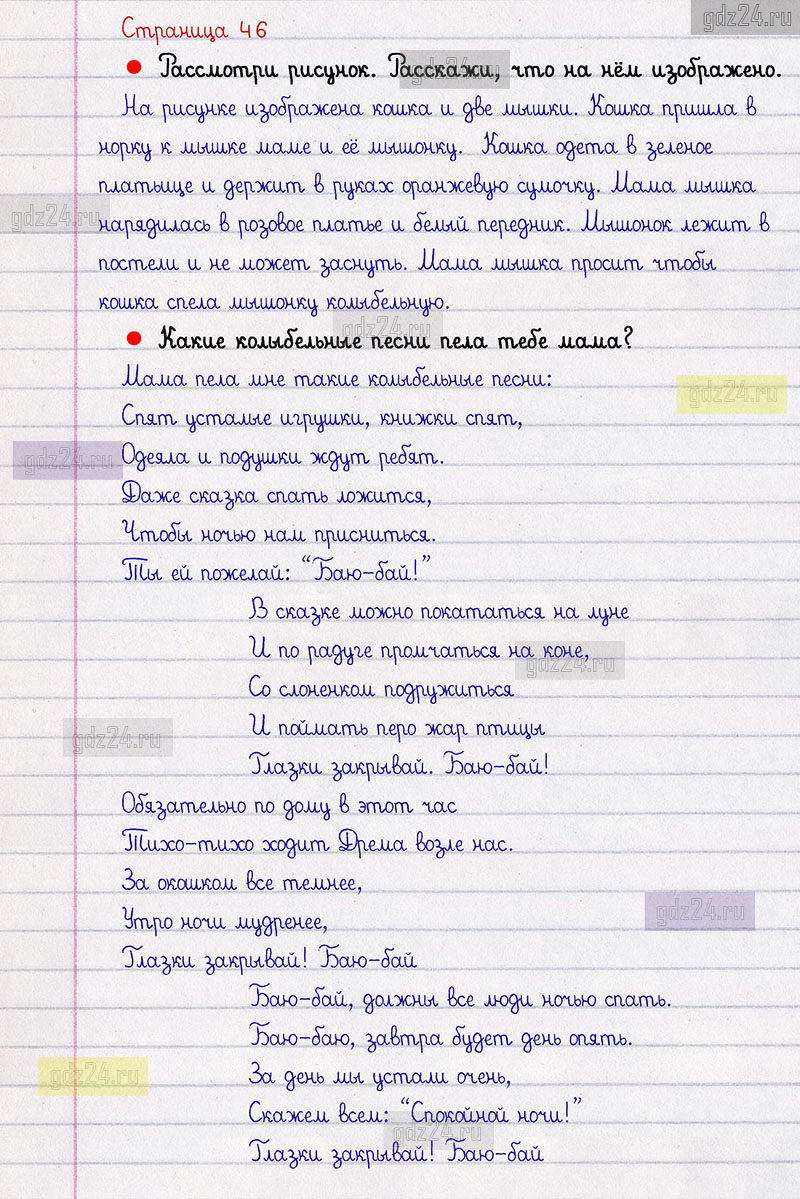 gdz24.ru
Страница 46
● Рассмотри рисунок. Расскажи, что на нём изображено.
На рисунке изображена кошка и две мышки. Кошка пришла в
норку к мышке маме и её мышонку. Кошка одета в зеленое
платьице и держит в руках оранжевую сумочку. Мама мышка
gdz24.ru
нарядилась в розовое платье и белый передник. Мышонок лежит в
постели и не может заснуть. Мама мышка просит чтобы
кошка спела мышонку колыбельную.
gdz24.ru
● Какие колыбельные песни пела тебе мама?
Мама пела мне такие колыбельные песни:
gdz24.ru
Спят усталые игрушки, книжки спят,
gdz24.ru
Одеяла и подушки ждут ребят.
Даже сказка спать ложится,
Чтобы ночью нам присниться.
Ты ей пожелай: “Баю-бай!”
В сказке можно покататься на луне
И по радуге промчаться на коне,
gdz24.ru
Со слоненком подружиться
И поймать перо жар птицы
gdz24.ru
Глазки закрывай. Баю-бай!
Обязательно по дому в этот час
Тихо-тихо ходит Дрема возле нас.
За окошком все темнее,
gdz24.ru
Утро ночи мудренее,
Глазки закрывай! Баю-бай
Баю-бай, должны все люди ночью спать.
Баю-баю, завтра будет день опять.
gdz24.ru
За день мы устали очень,
Скажем всем: “Спокойной ночи!”
gdz24.ru
Глазки закрывай! Баю-бай